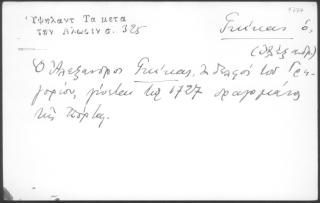 Ὑψηλαντ Τα μετα
την Αλωσιν σ. 325
Γκίκας ὁ,
(Ἀλέξανδρ)
Ὁ Ἀλέξανδρος Γκίκας, ἀδελφός τοῦ Γρη
γορίου, γίνεται τῷ 1727 δραγομάνος
τῆς Πόρτας.